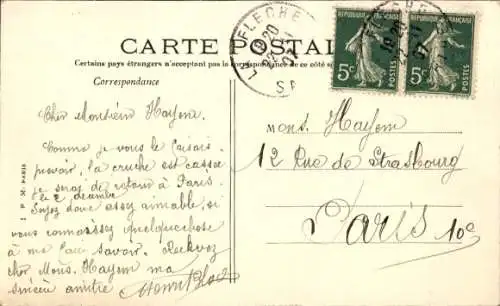 CARTE POSTALE
Certains pays étrangers n'acceptent pas la correspondance de ce côté
Correspondance
LA FLECHE
SA
RÉPUBLIQUE FRANÇAISE
5c
POSTES
RÉPUBLIQUE FRANÇAISE
5c
POSTES
I P M PARIS
Cher Monsieur Hayem,
Comme je vous le faisais
prevoir, la cruche est cassée
je serai de retour à Paris
le 2 décembre
Soyez donc assez aimable, si
vous connaissez quelquechose
à me faire savoir. Recevez
cher Mons. Hayem ma
sincère amitié
Mons. Hayem
12 Rue de Strasbourg
Paris 10e